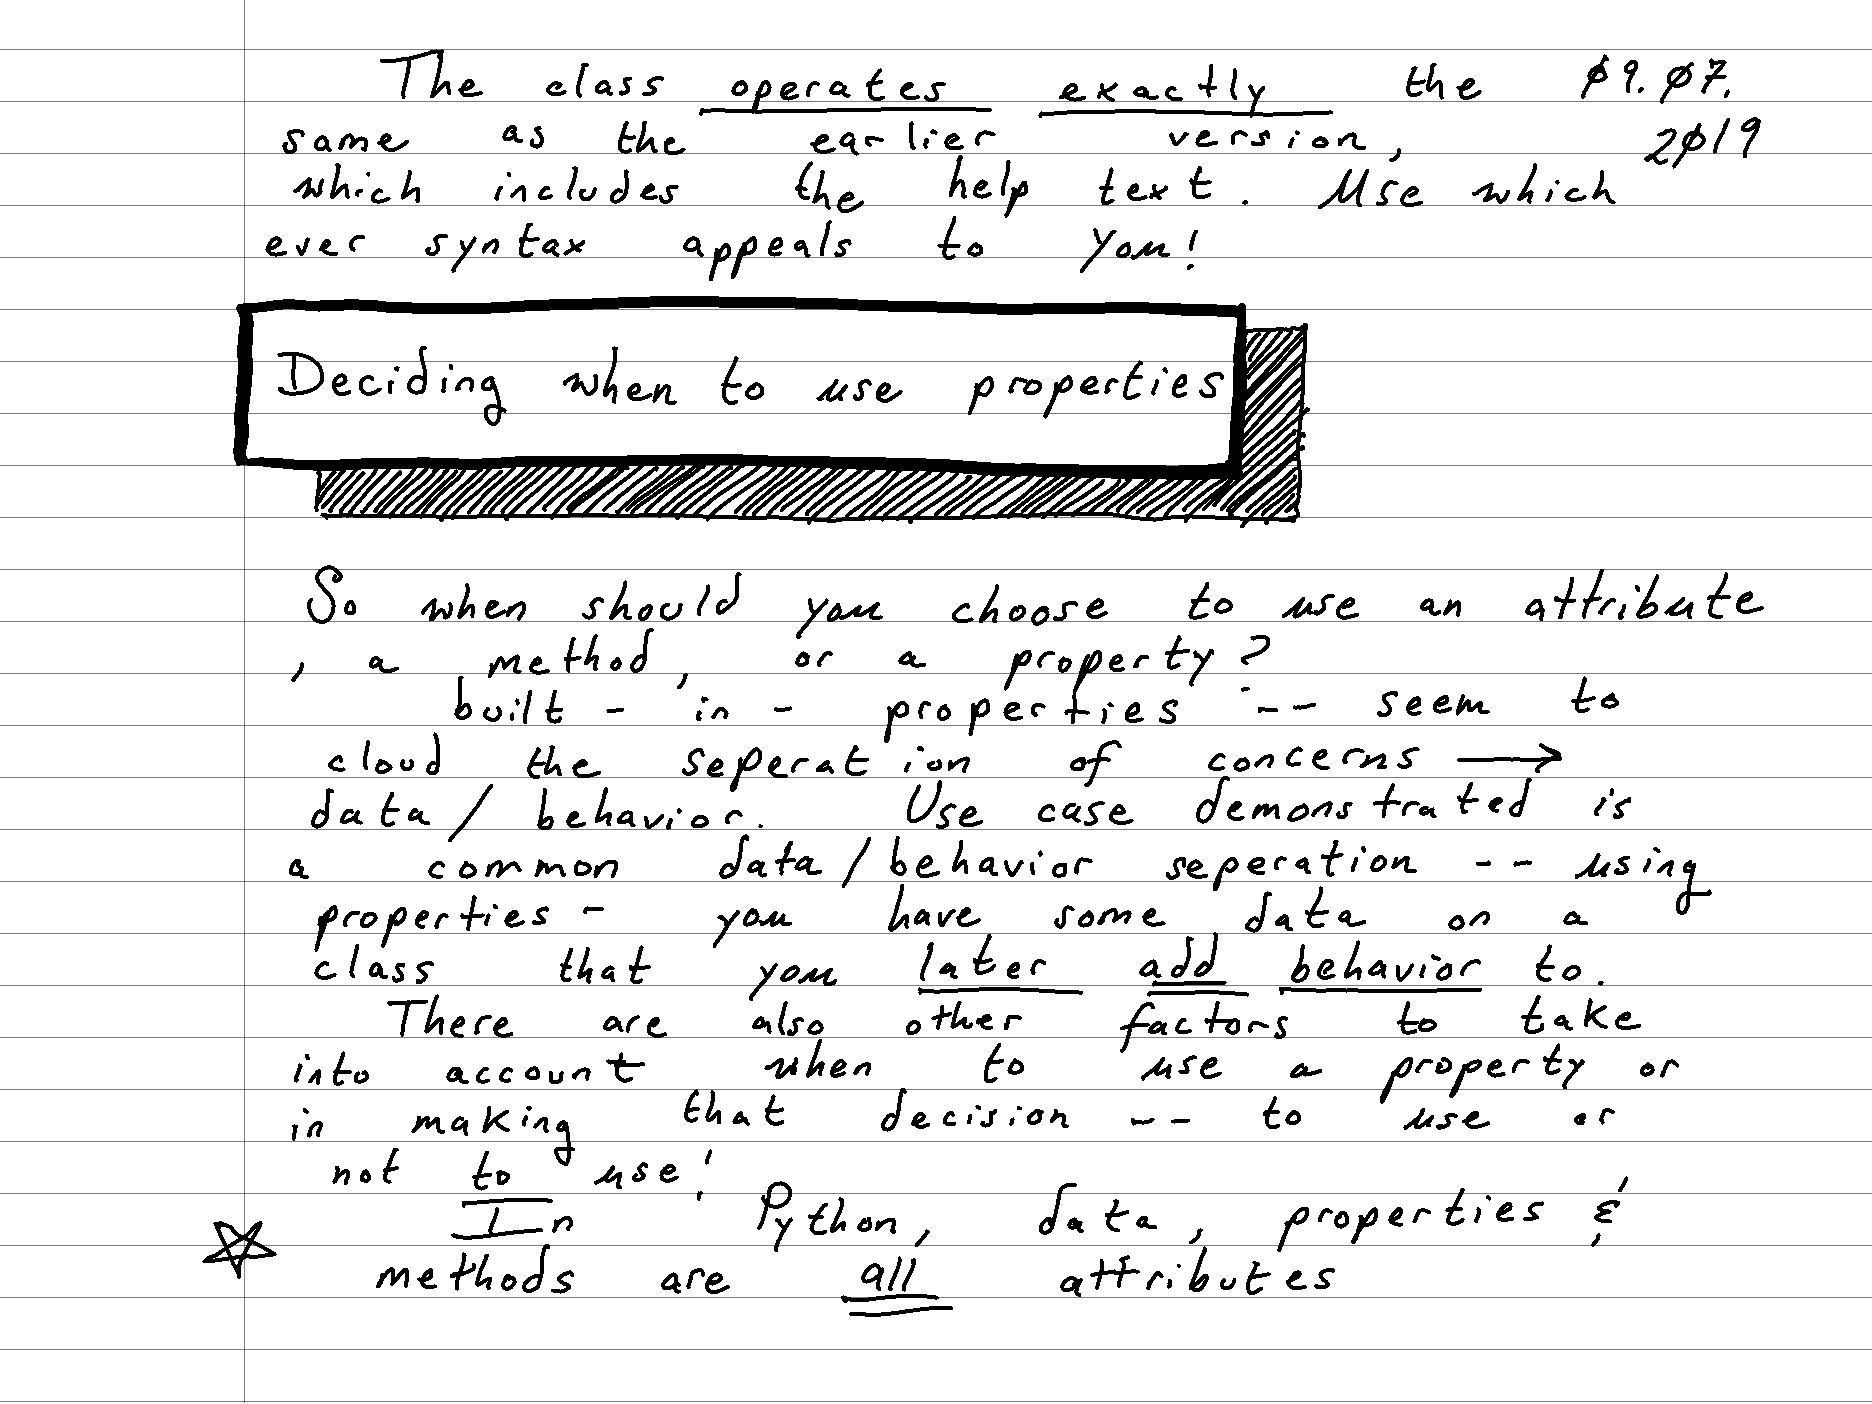 The class operates exactly the 09.07.
same as the earlier version, 2019
which includes the help text. Use which
ever syntax appeals to you!
Deciding when to use properties
So when should you choose to use an attribute
, a method, or a property?
built - in - properties -- seem to
cloud the seperation of concerns →
data / behavior. Use case demonstrated is
a common data / behavior seperation -- using
properties - you have some data on a
class that you later add behavior to.
There are also other factors to take
into account when to use a property or
in making that decision -- to use or
not to use!
In Python, data, properties &
methods are all attributes